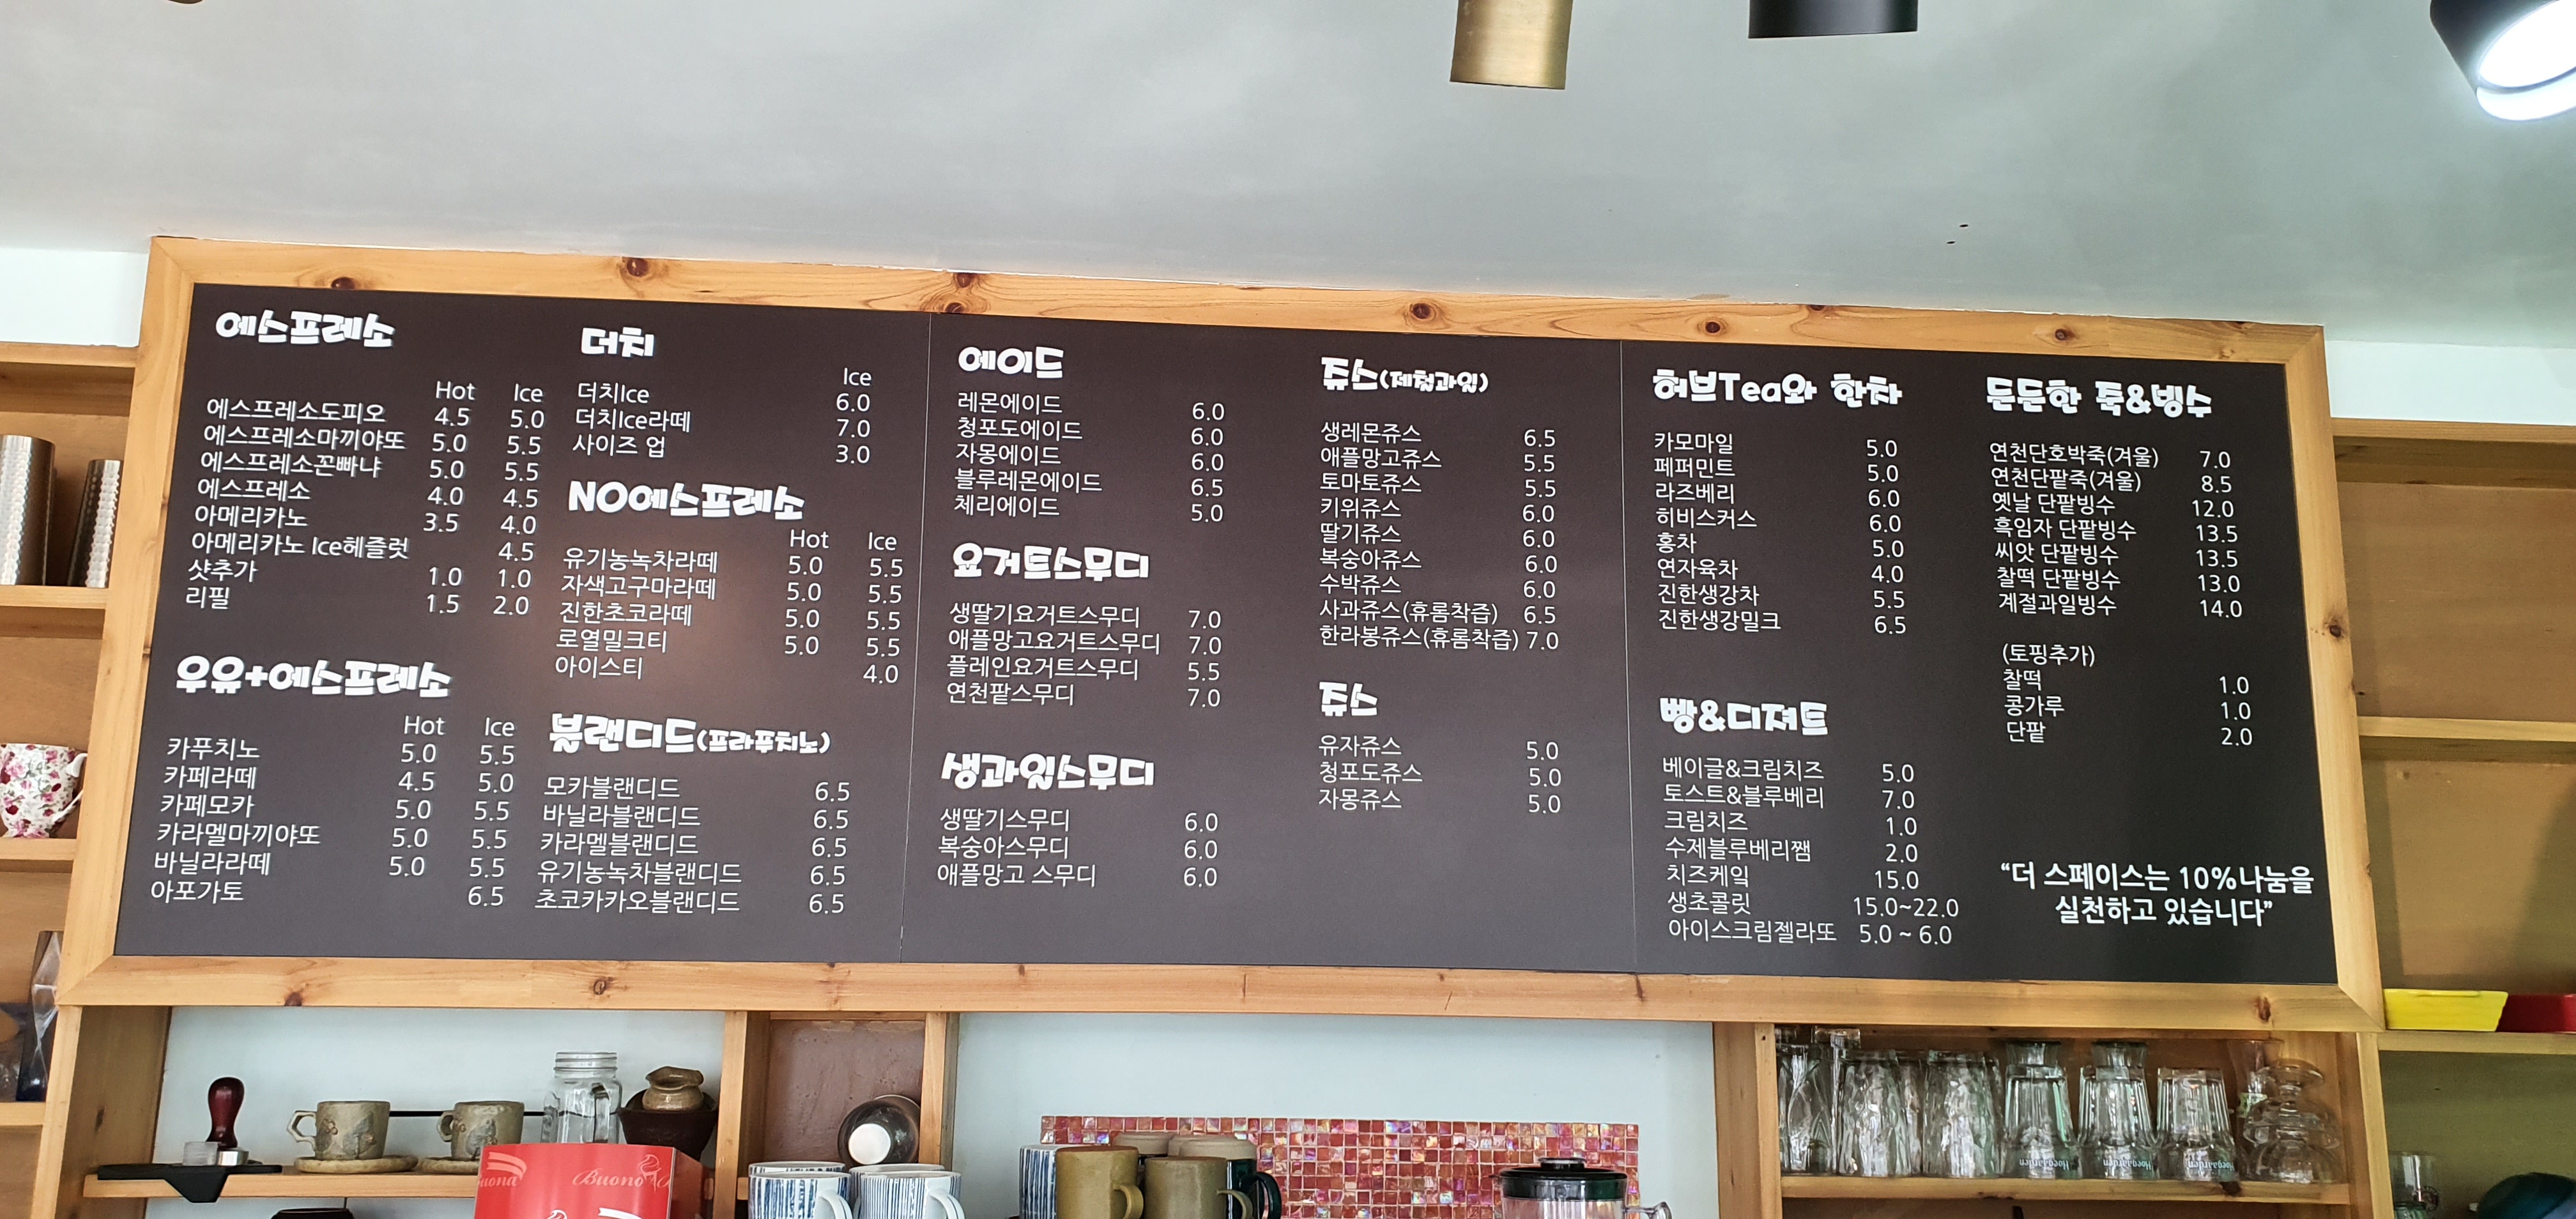 에스프레소
Hot Ice
에스프레소도피오 4.5 5.0
에스프레소마끼야또 5.0 5.5
에스프레소꼰빠냐 5.0 5.5
에스프레소 4.0 4.5
아메리카노 3.5 4.0
아메리카노 Ice헤즐럿 4.5
샷추가 1.0 1.0
리필 1.5 2.0
우유+에스프레소
Hot Ice
카푸치노 5.0 5.5
카페라떼 4.5 5.0
카페모카 5.0 5.5
카라멜마끼야또 5.0 5.5
바닐라라떼 5.0 5.5
아포가토 6.5
더치
Ice
더치Ice 6.0
더치Ice라떼 7.0
사이즈 업 3.0
NO에스프레소
Hot Ice
유기농녹차라떼 5.0 5.5
자색고구마라떼 5.0 5.5
진한초코라떼 5.0 5.5
로열밀크티 5.0 5.5
아이스티 4.0
블랜디드(프라푸치노)
모카블랜디드 6.5
바닐라블랜디드 6.5
카라멜블랜디드 6.5
유기농녹차블랜디드 6.5
초코카카오블랜디드 6.5
에이드
레몬에이드 6.0
청포도에이드 6.0
자몽에이드 6.0
블루레몬에이드 6.5
체리에이드 5.0
요거트스무디
생딸기요거트스무디 7.0
애플망고요거트스무디 7.0
플레인요거트스무디 5.5
연천팥스무디 7.0
생과일스무디
생딸기스무디 6.0
복숭아스무디 6.0
애플망고 스무디 6.0
쥬스(제철과일)
생레몬쥬스 6.5
애플망고쥬스 5.5
토마토쥬스 5.5
키위쥬스 6.0
딸기쥬스 6.0
복숭아쥬스 6.0
수박쥬스 6.0
사과쥬스(휴롬착즙) 6.5
한라봉쥬스(휴롬착즙) 7.0
쥬스
유자쥬스 5.0
청포도쥬스 5.0
자몽쥬스 5.0
허브Tea와 한차
카모마일 5.0
페퍼민트 5.0
라즈베리 6.0
히비스커스 6.0
홍차 5.0
연자육차 4.0
진한생강차 5.5
진한생강밀크 6.5
빵&디져트
베이글&크림치즈 5.0
토스트&블루베리 7.0
크림치즈 1.0
수제블루베리쨈 2.0
치즈케잌 15.0
생초콜릿 15.0~22.0
아이스크림젤라또 5.0 ~ 6.0
든든한 죽&빙수
연천단호박죽(겨울) 7.0
연천단팥죽(겨울) 8.5
옛날 단팥빙수 12.0
흑임자 단팥빙수 13.5
씨앗 단팥빙수 13.5
찰떡 단팥빙수 13.0
계절과일빙수 14.0
(토핑추가)
찰떡 1.0
콩가루 1.0
단팥 2.0
“더 스페이스는 10%나눔을
실천하고 있습니다”
Buono
Hoegaarden
Hoegaarden
Hoegaarden